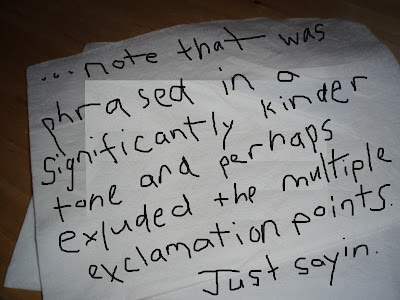 ...note that was
phrased in a
significantly kinder
tone and perhaps
exluded the multiple
exclamation points.
Just sayin.